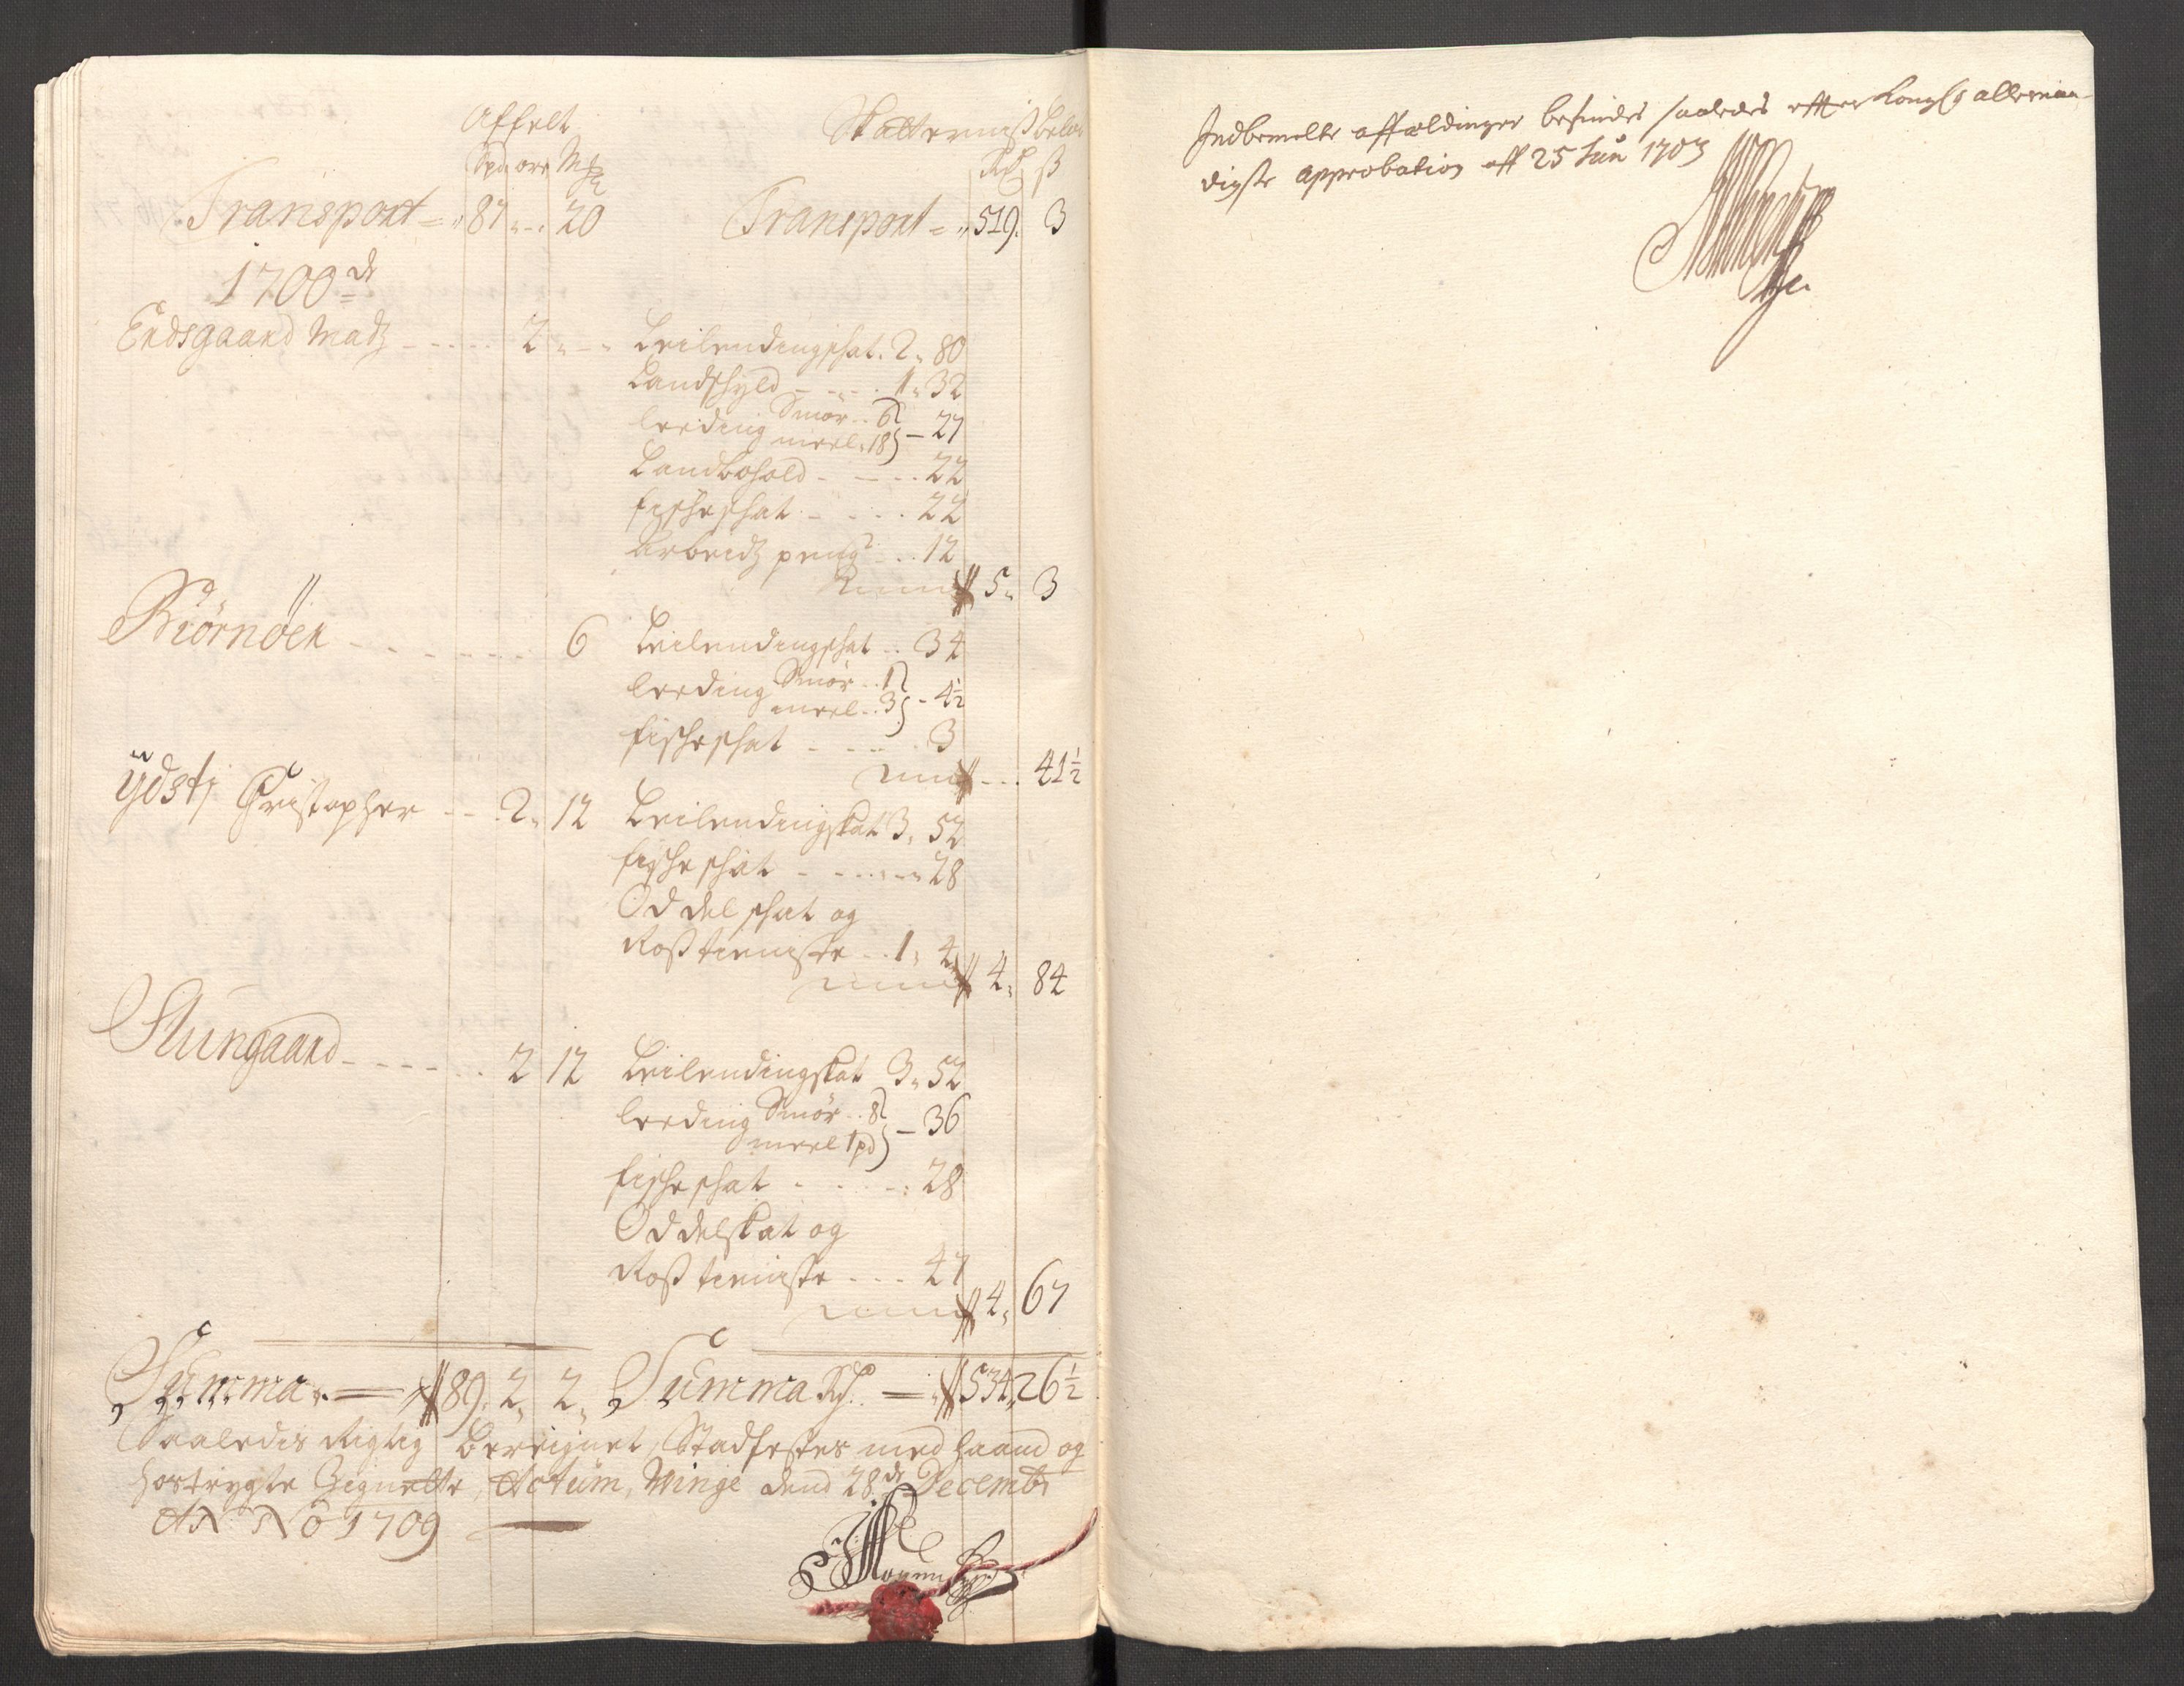 Affelt
Skatternis beløb
Spd ore Mk
Rd ß
Transport = 87 - - 20 Transport = 519. 3
1700de
Endsgaard Madz - - - - - 2 - - Leilendingschat. 2. 80
Landschyld - - - - 1. 32
leeding Smør - - 6
meel. 18 - 27
Landbohold - - - - 22
fischeschat - - - - 22
Arbeidz peng - - 12
5. 3
Biørnøen - - - - - - 6 Leilendingschat - - 34
leeding Smør - - 1
meel - - 3 - 4½
fischeschat - - - - 3
- - - 41½
ÿdstj Christopher - - - 2. 12 Leilendingskat 3. 52
fischeschat - - - - - 28
Oddelschat og
Rosstienniste - - 1. 4
4. 84
Stungaard - - - - - - 2 12 Leilendingskat 3. 52
leeding Smør - - 8
meel 1pd - 36
fischeschat - - - - - 28
Oddelskat og
Rosstienniste - - - 47
4. 67
Summa. = 89. 2. 2. Summa Rd. = 534. 26½
Saaledis Rigtig bereignet, Stadfester med haand og
hostrygte Zignette, Actum, Winge dend 28de Decembr
ANNO 1709
Indbemelte affeldinger befindes saaledes efter Kongl allernaa-
digste approbation aff 25 Jun 1703